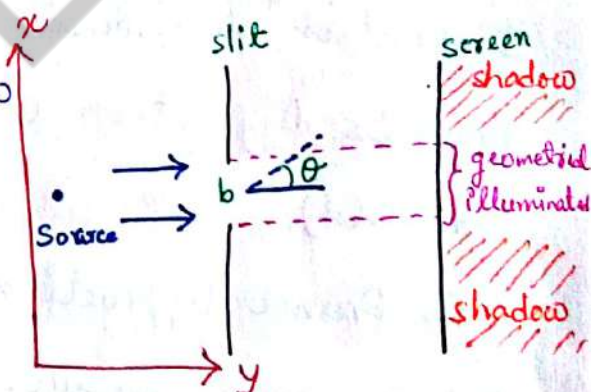 x
slit
screen
shadow
geometrical
illuminated
θ
b
Source
shadow
y